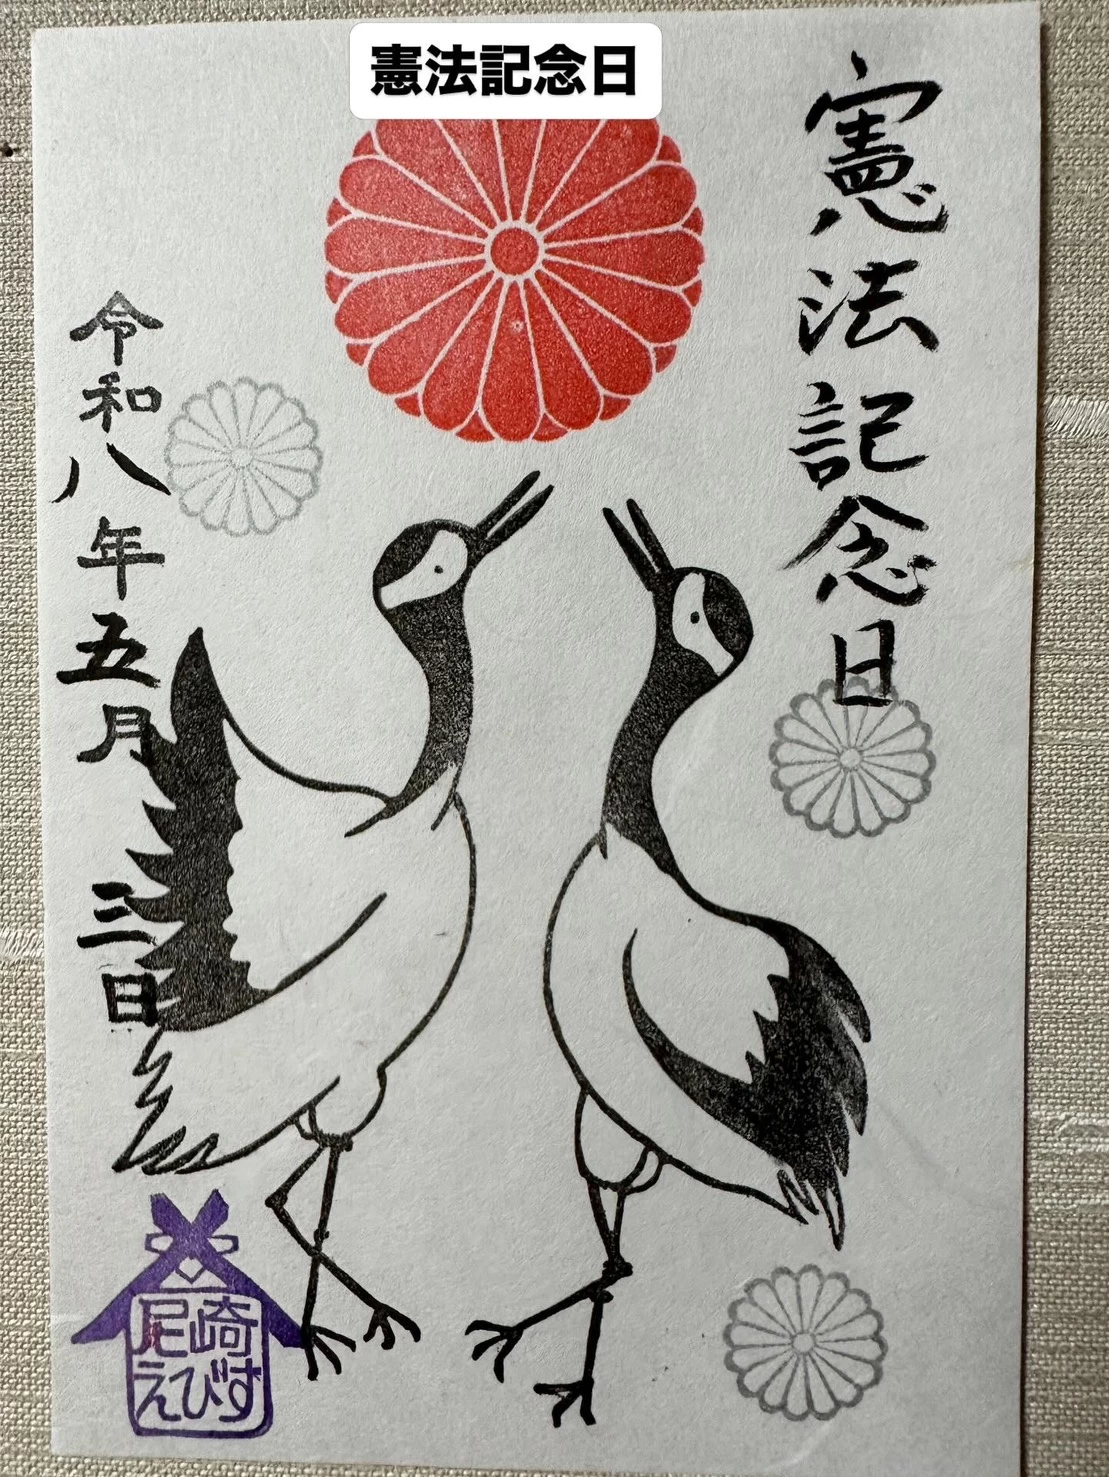 憲法記念日
憲法記念日
令和八年五月三日
尼崎
えびす